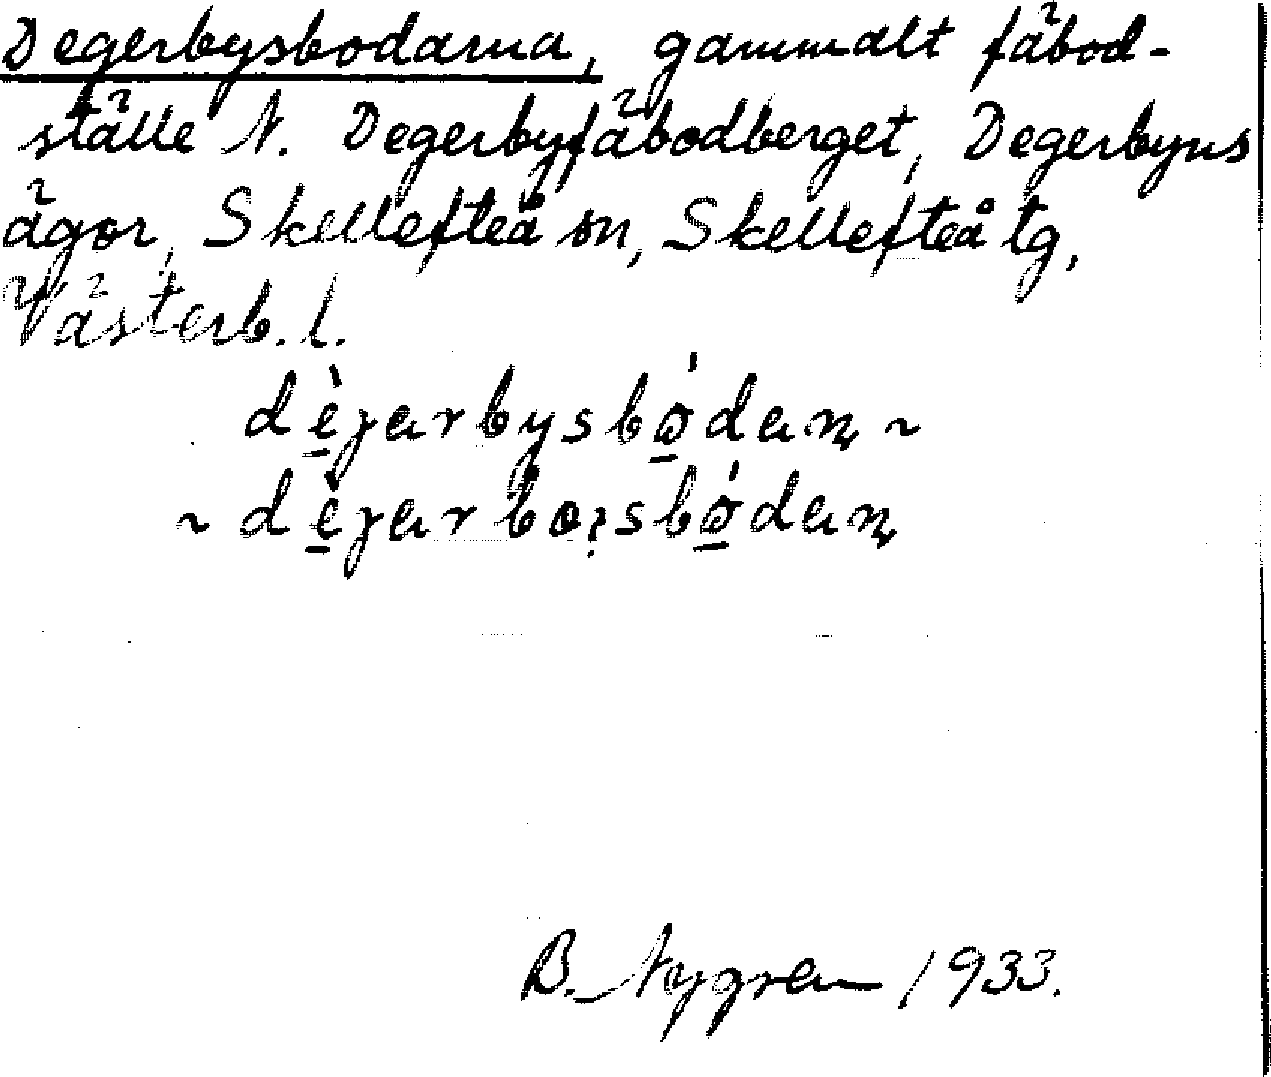 Degerbysbodarna, gammalt fäbod-
ställe N. Degerbyfäbodberget, Degerbyns
ägor, Skellefteå sn, Skellefteå tg,
Västerb. l.
dè̱jarbysbǿ̱dan̨ ~
~ dè̱jarbo?sbǿ̱dan̨
B. Nygren 1933.